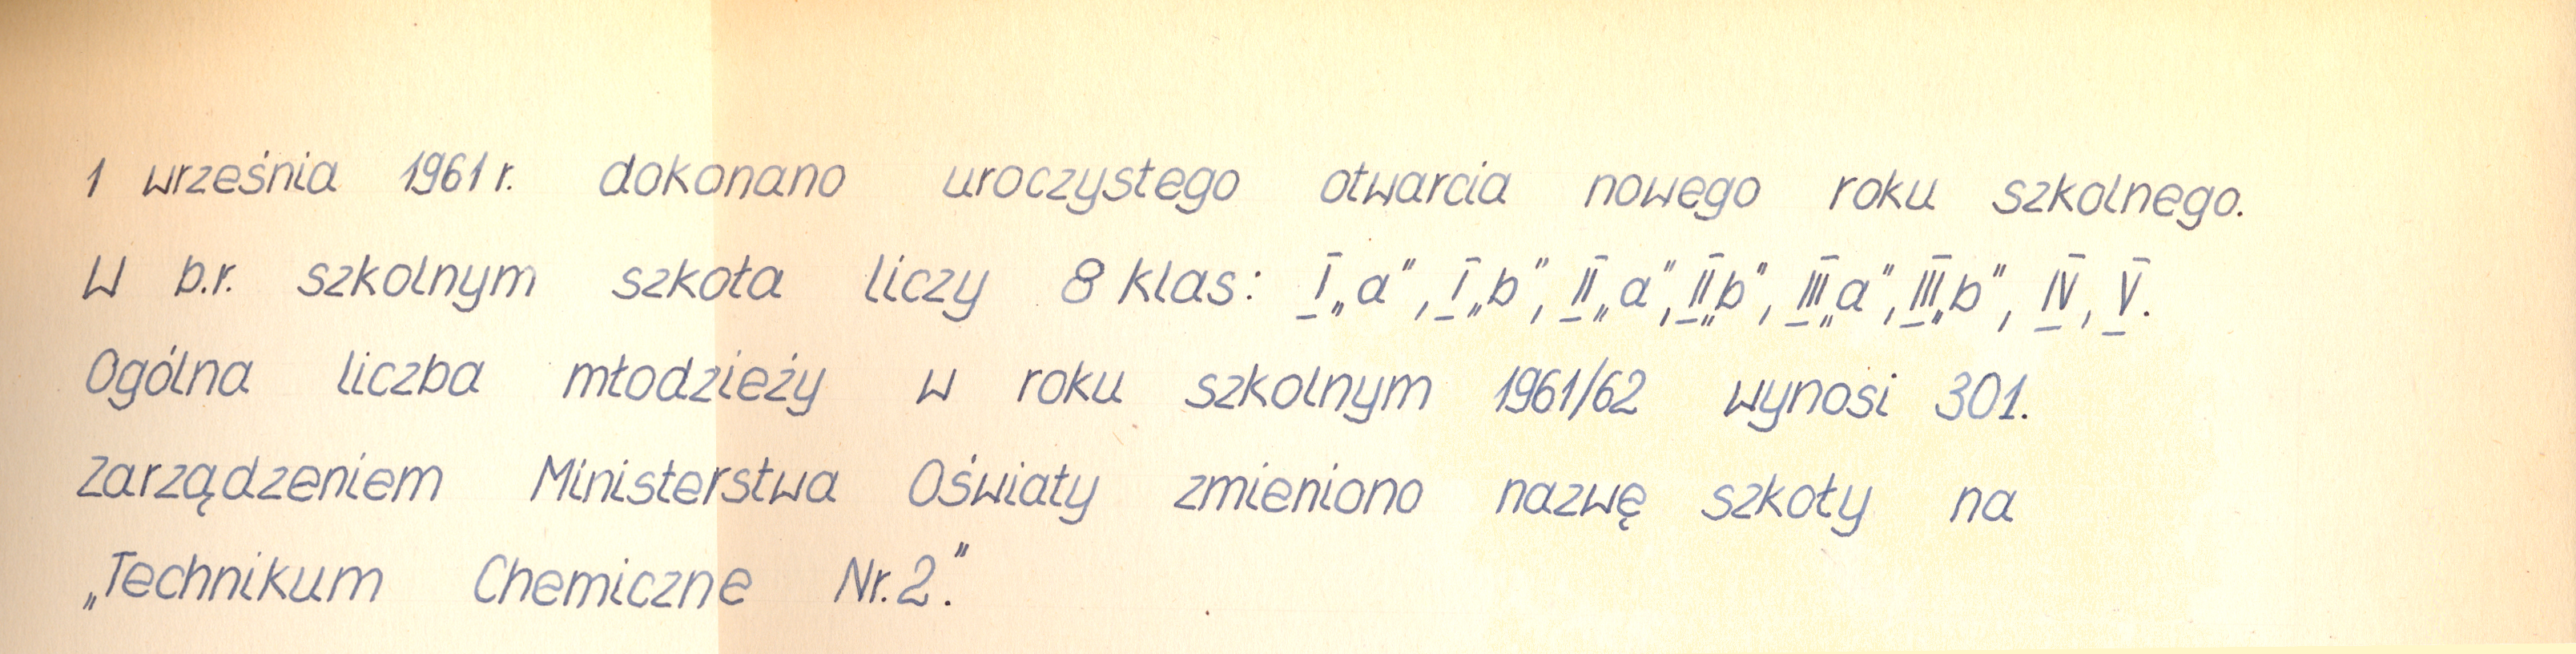 1 września 1961 r. dokonano uroczystego otwarcia nowego roku szkolnego.
W b.r. szkolnym szkoła liczy 8 klas: I „a”, I „b”, II „a”, II „b”, III „a”, III „b”, IV, V.
Ogólna liczba młodzieży w roku szkolnym 1961/62 wynosi 301.
Zarządzeniem Ministerstwa Oświaty zmieniono nazwę szkoły na
„Technikum Chemiczne Nr. 2.”